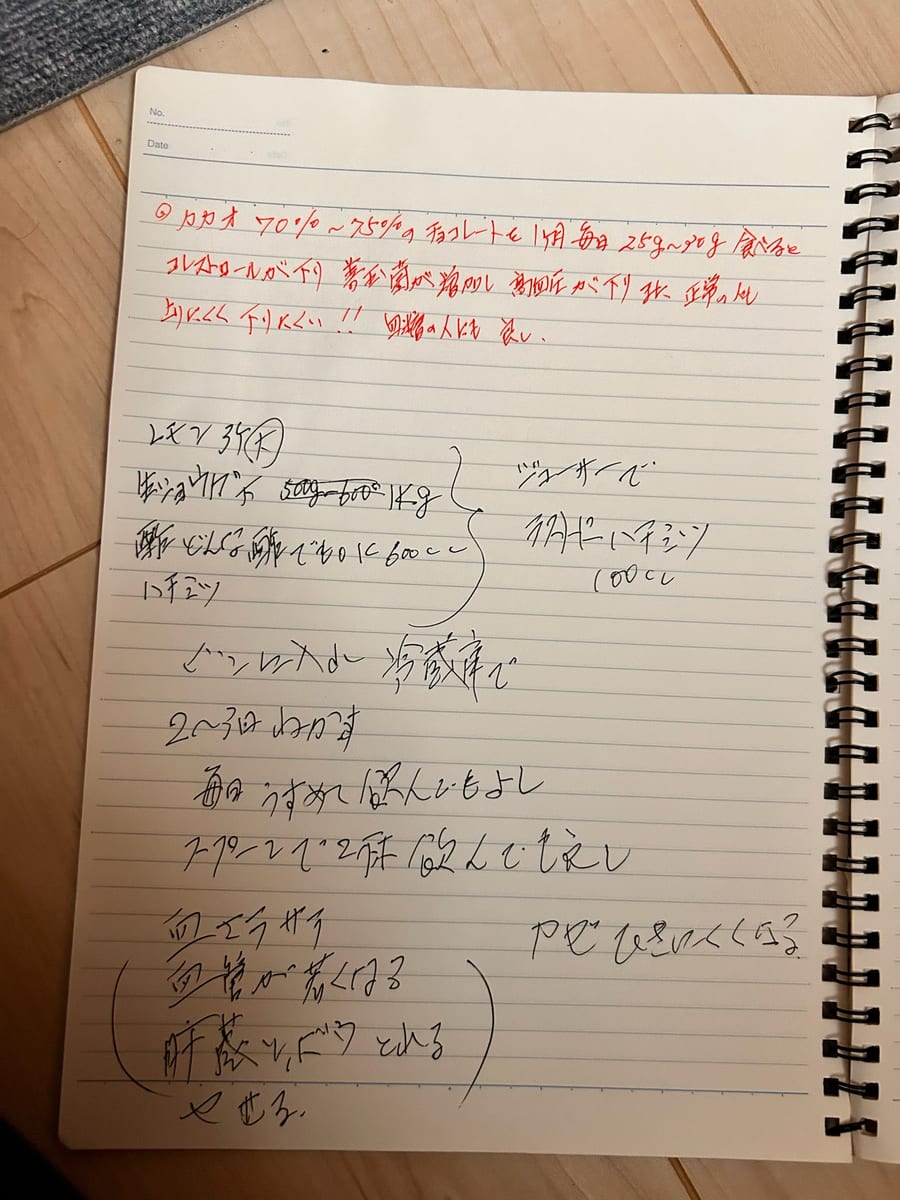 No.
Date
◎ カカオ 70%〜75%のチョコレートを1ヶ月毎日 25g〜30g 食べると
コレストロールが下り 善玉菌が増加し 高血圧が下り また 正常の人も
上りにくく 下りにくい!! 血糖の人にも 良し.
レモン 3ケ 大
生ショウガ 500g〜600g 1Kg
酢 どんな酢でもOK 600cc
ハチミツ
ジューサーで
ハチミツ
100cc
ビンに入れ 冷蔵庫で
2〜3日 ねかす
毎日 うすめて 飲んでもよし
スプーンで2杯 飲んでも良し
血エラサラ
カゼひきにくくなる
血管が若くなる
肝臓 とれる
やせる.